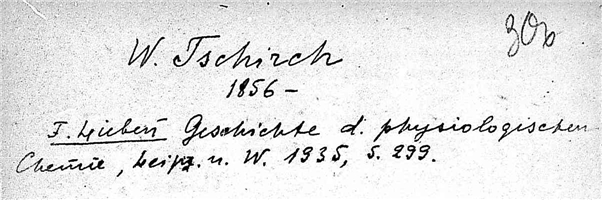 30b
W. Tschirch
1856 -
F. Lieben Geschichte d. physiologischen
Chemie, Leipz. u. W. 1935, S. 299.